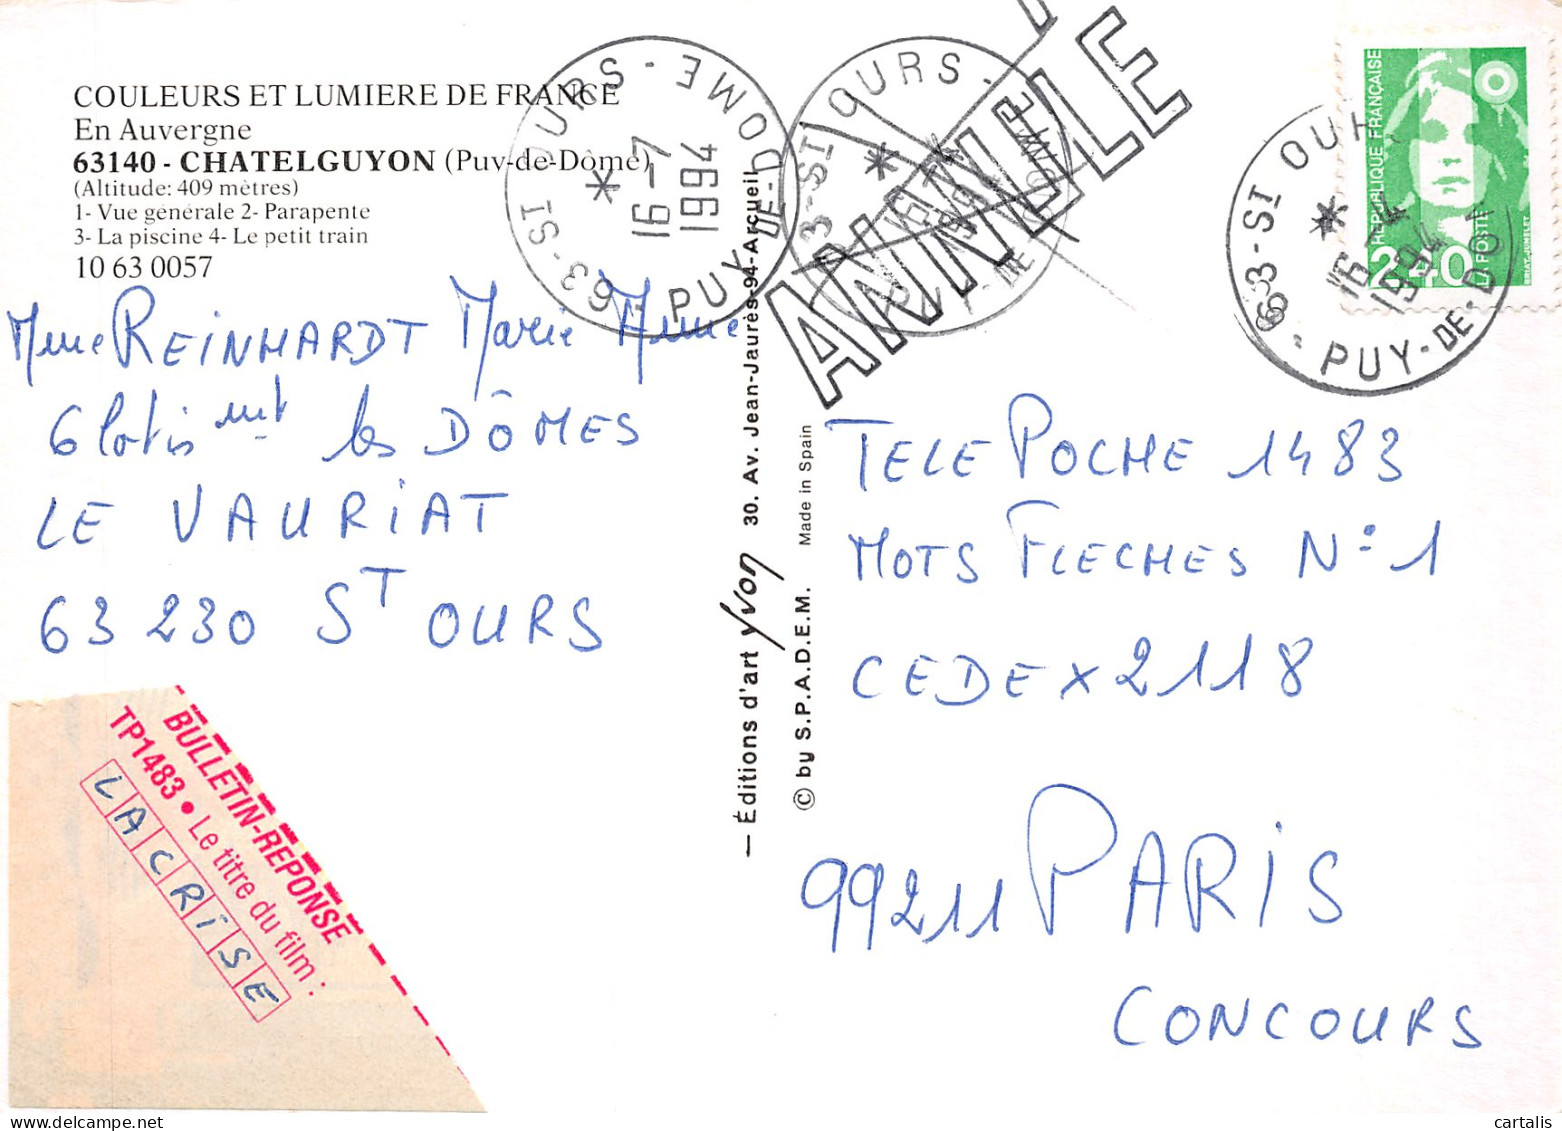 COULEURS ET LUMIERE DE FRANCE
En Auvergne
63140 - CHATELGUYON (Puy-de-Dôme)
(Altitude: 409 mètres)
1- Vue générale 2- Parapente
3- La piscine 4- Le petit train
10 63 0057
Mme REINHARDT Marie Aimée
6 lotis mt les DÔMES
LE VAURIAT
63 230 ST OURS
BULLETIN-REPONSE
TP1483 • Le titre du film :
LA CRISE
— Éditions d'art Yvon 30. Av. Jean-Jaurès-94-Arcueil
© by S.P.A.D.E.M. Made in Spain
63-ST OURS-
PUY-DE-DOME
*
16-7
1994
63-ST OURS-
PUY-DE-
*
1994
ANNULE
63-ST OUR
PUY-DE-DOM
*
1994
REPUBLIQUE FRANÇAISE
2,40
LA POSTE
TELE POCHE 1483
MOTS FLECHES N° 1
CEDEX 2118
99211 PARIS
CONCOURS
cartalis